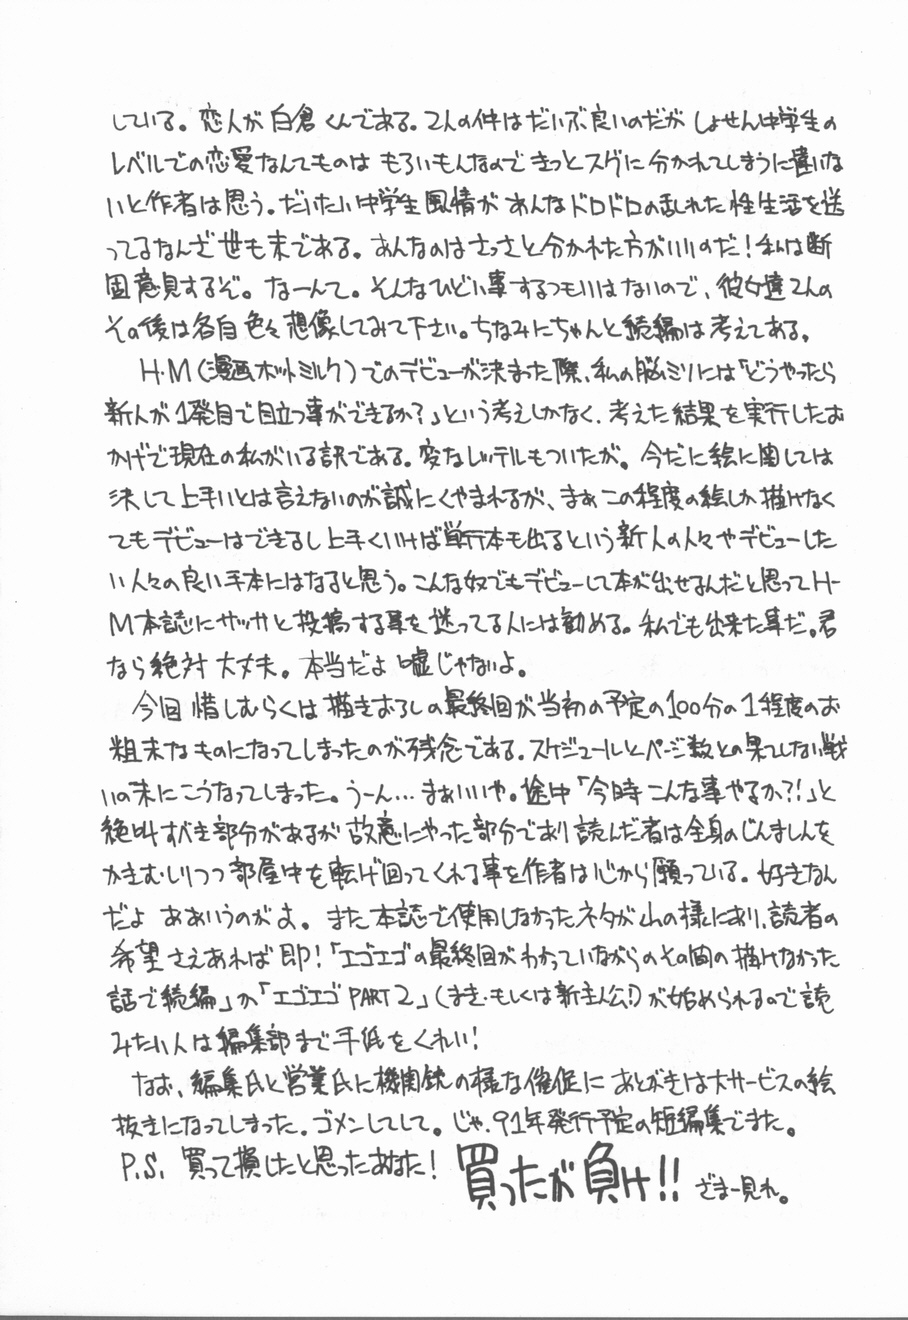 している。恋人が白倉くんである。2人の件はだいぶ良いのだがしょせん中学生の
レベルでの恋愛なんてものはもろいもんなのできっとスグに分かれてしまうに違いな
いと作者は思う。だいたい中学生風情があんなドロドロの乱れた性生活を送
ってるなんざ世も末である。あんなのはさっさと分かれた方がいいのだ!私は断
固意見するぞ。なーんて。そんなひどい事するつもりはないので、彼女達2人の
その後は各自色々想像してみて下さい。ちなみにちゃんと続編は考えてある。
H·M(漫画ホットミルク)でのデビューが決まった際、私の脳ミソには「どうやったら
新人が1発目で目立つ事ができるか?」という考えしかなく、考えた結果を実行したお
かげで現在の私がいる訳である。変なレッテルもついたが。今だに絵に関しては
決して上手いとは言えないのが誠にくやまれるが、まぁこの程度の絵しか描けなく
てもデビューはできるし上手くいけば単行本も出るという新人の人々やデビューした
い人々の良い手本にはなると思う。こんな奴でもデビューして本が出せるんだと思ってH·
M本誌にサッサと投稿する事を迷ってる人には勧める。私でも出来た事だ。君
なら絶対大丈夫。本当だよ嘘じゃないよ。
今回惜しむらくは描きおろしの最終回が当初の予定の100分の1程度のお
粗末なものになってしまったのが残念である。スケジュールとページ数との果てしない戦
いの末にこうなってしまった。うーん…まぁいいや。途中「今時こんな事やるか?!」と
絶叫すべき部分があるが故意にやった部分であり読んだ者は全身のじんましんを
かきむしりつつ部屋中を転げ回ってくれる事を作者は心から願っている。好きなん
だよああいうのがよ。また本誌で使用しなかったネタが山の様にあり、読者の
希望さえあれば即!「エゴエゴの最終回がわかっていながらのその間の描けなかった
話で続編」か「エゴエゴPART2」(まき·もしくは新主人公!)が始められるので読
みたい人は編集部まで手紙をくれい!
なお、編集氏と営業氏に機関銃の様な催促にあとがきは大サービスの絵
抜きになってしまった。ゴメンしてして。じゃ、91年発行予定の短編集でまた。
P.S. 買って損したと思ったあなた!買ったが負け!!ざまー見れ。